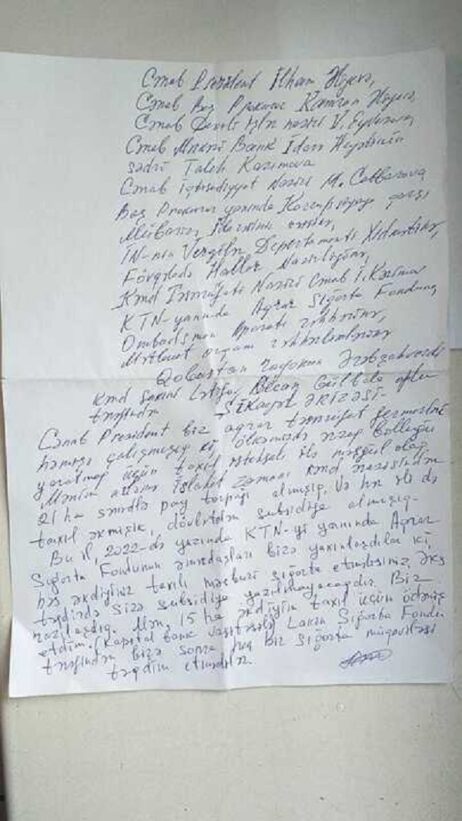 Cənab Prezident İlham Əliyevə,
Cənab Baş Prokuror Kamran Əliyevə,
Cənab Daxili İşlər naziri V. Eyvazova,
Cənab Mərkəzi Bank İdarə Heyətinin
sədri Taleh Kazımova
Cənab İqtisadiyyat Naziri M. Cabbarova
Baş Prokuror yanında Korrupsiyaya qarşı
Mübarizə İdarəsinə
İN-nin Vergilər Departamenti
Fövqəladə Hallar Nazirliyinə,
Kənd Təsərrüfatı Naziri Cənab İ. Kərimov
KTN-yanında Aqrar Sığorta Fonduna,
Ombudsman Aparatı
Mətbuat orqanı rəhbərlərinə
Qobustan rayonu
kənd sakini Gülbala oğlu
tərəfindən
ŞİKAYƏT ƏRİZƏSİ
Cənab Prezident biz aqrar təsərrüfat
həmişə çalışmışıq ki, ölkəmizdə ərzaq bolluğu
yaratmaq üçün taxıl istehsalı ilə məşğul olaq
Mənim islahat zamanı kənd ərazisindən
21 ha pay torpağı almışıq. Və hər il də
taxıl əkmişik, dövlətdən subsidiya almışıq.
Bu il, 2022-də yazında KTN-yi yanında Aqrar
Sığorta Fondunun əməkdaşları bizə yaxınlaşdılar ki
əkdiyiniz taxılı məcburi sığorta etməlisiniz, əks
təqdirdə sizə subsidiya yazılmayacaqdır. Biz
razılaşdıq. Mən, 15 ha əkdiyim taxıl üçün ödəniş
etdim. (Kapital bank vasitəsilə) Lakin Sığorta Fondu
tərəfindən bizə sonra heç bir sığorta müqaviləsi
təqdim etmədilər.